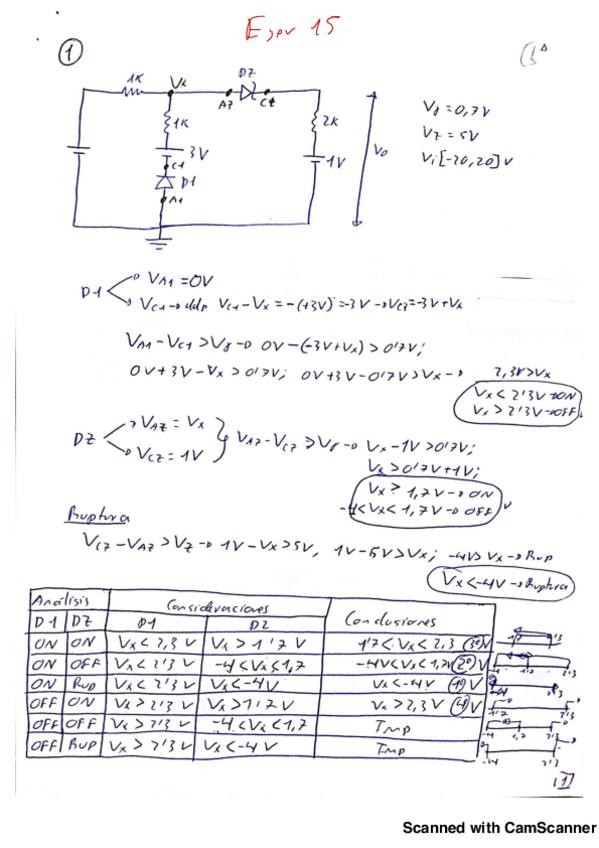 Ejer 15
1
1K
Vx
DZ
AZ
CZ
1K
3V
C1
D1
A1
2K
1V
Vo
Vγ = 0,7V
VZ = 5V
Vi[-20,20]V
D1
VA1 = 0V
VC1 → ddp VC1-Vx = -(+3V) = -3V → VC1 = -3V+Vx
VA1 - VC1 > Vγ → 0V - (-3V+Vx) > 0'7V;
0V+3V-Vx > 0'7V; 0V+3V-0'7V > Vx → 2,3V > Vx
Vx < 2'3V → ON
Vx > 2'3V → OFF
DZ
VAZ = Vx
VCZ = 1V
VAZ - VCZ > Vγ → Vx - 1V > 0'7V;
Vx > 0'7V+1V;
Vx > 1,7V → ON
-4 < Vx < 1,7V → OFF
Ruptura
VCZ - VAZ > VZ → 1V - Vx > 5V, 1V - 5V > Vx; -4V > Vx → Rup
Vx < -4V → Ruptura
Análisis Consideraciones Conclusiones
D1 DZ D1 DZ
ON ON Vx < 2,3 V Vx > 1'7 V 1'7 < Vx < 2,3 3º V
ON OFF Vx < 2'3 V -4 < Vx < 1,7 -4V < Vx < 1,7V 2º V
ON Rup Vx < 2'3 V Vx < -4V Vx < -4V 1º V
OFF ON Vx > 2'3 V Vx > 1'7 V Vx > 2,3V 4º V
OFF OFF Vx > 2'3 V -4 < Vx < 1,7 Imp
OFF Rup Vx > 2'3 V Vx < -4 V Imp
1
Scanned with CamScanner